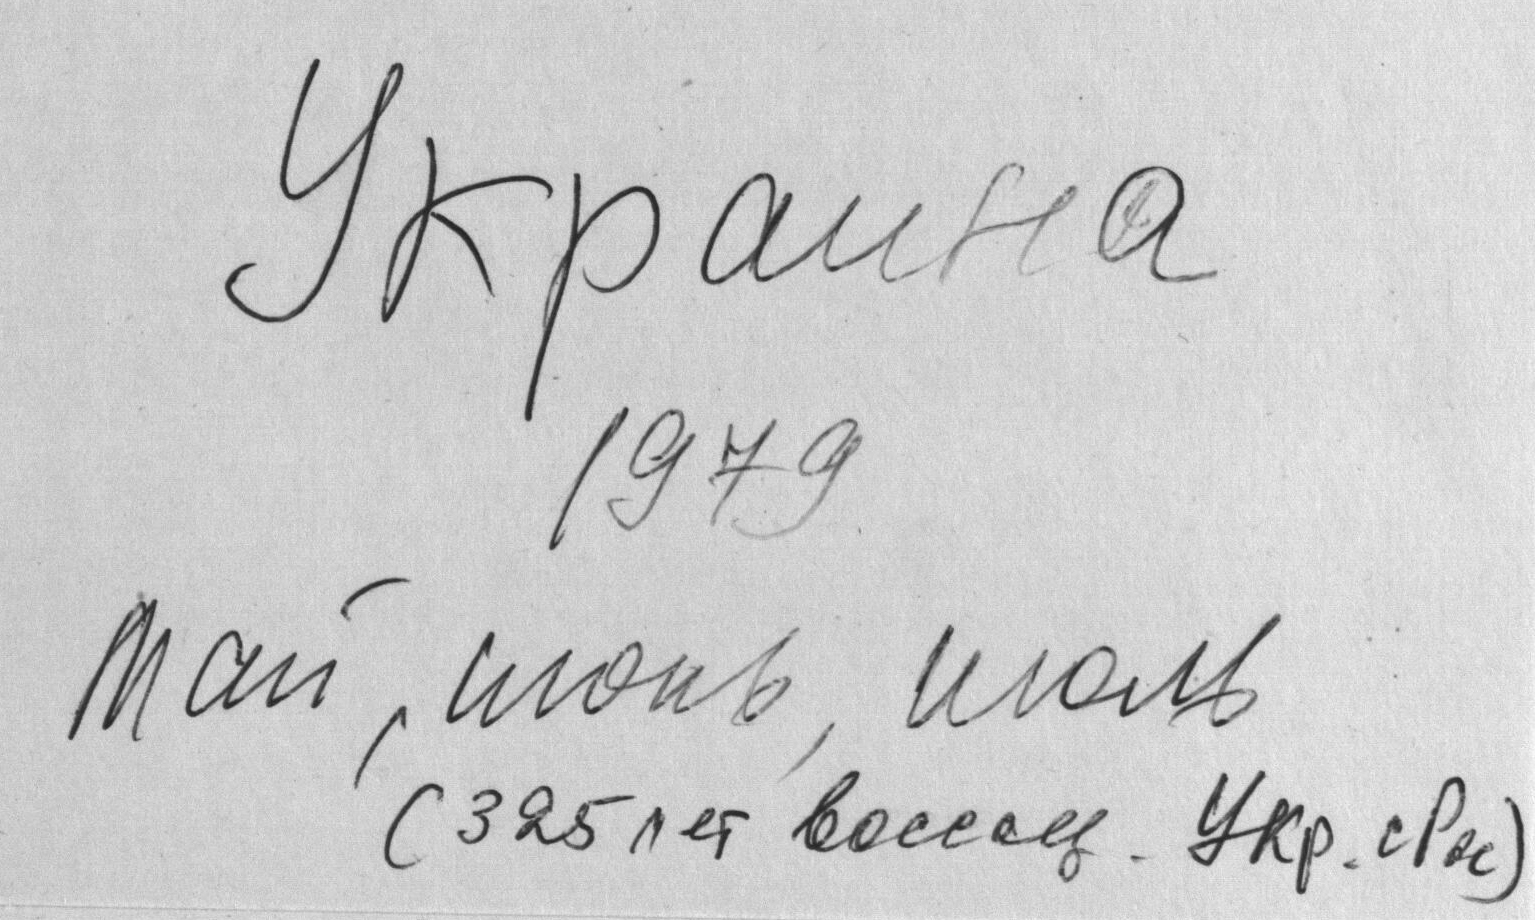 Украина
1979
Май, июнь, июль
(325 лет воссоед. Укр. с Рос)